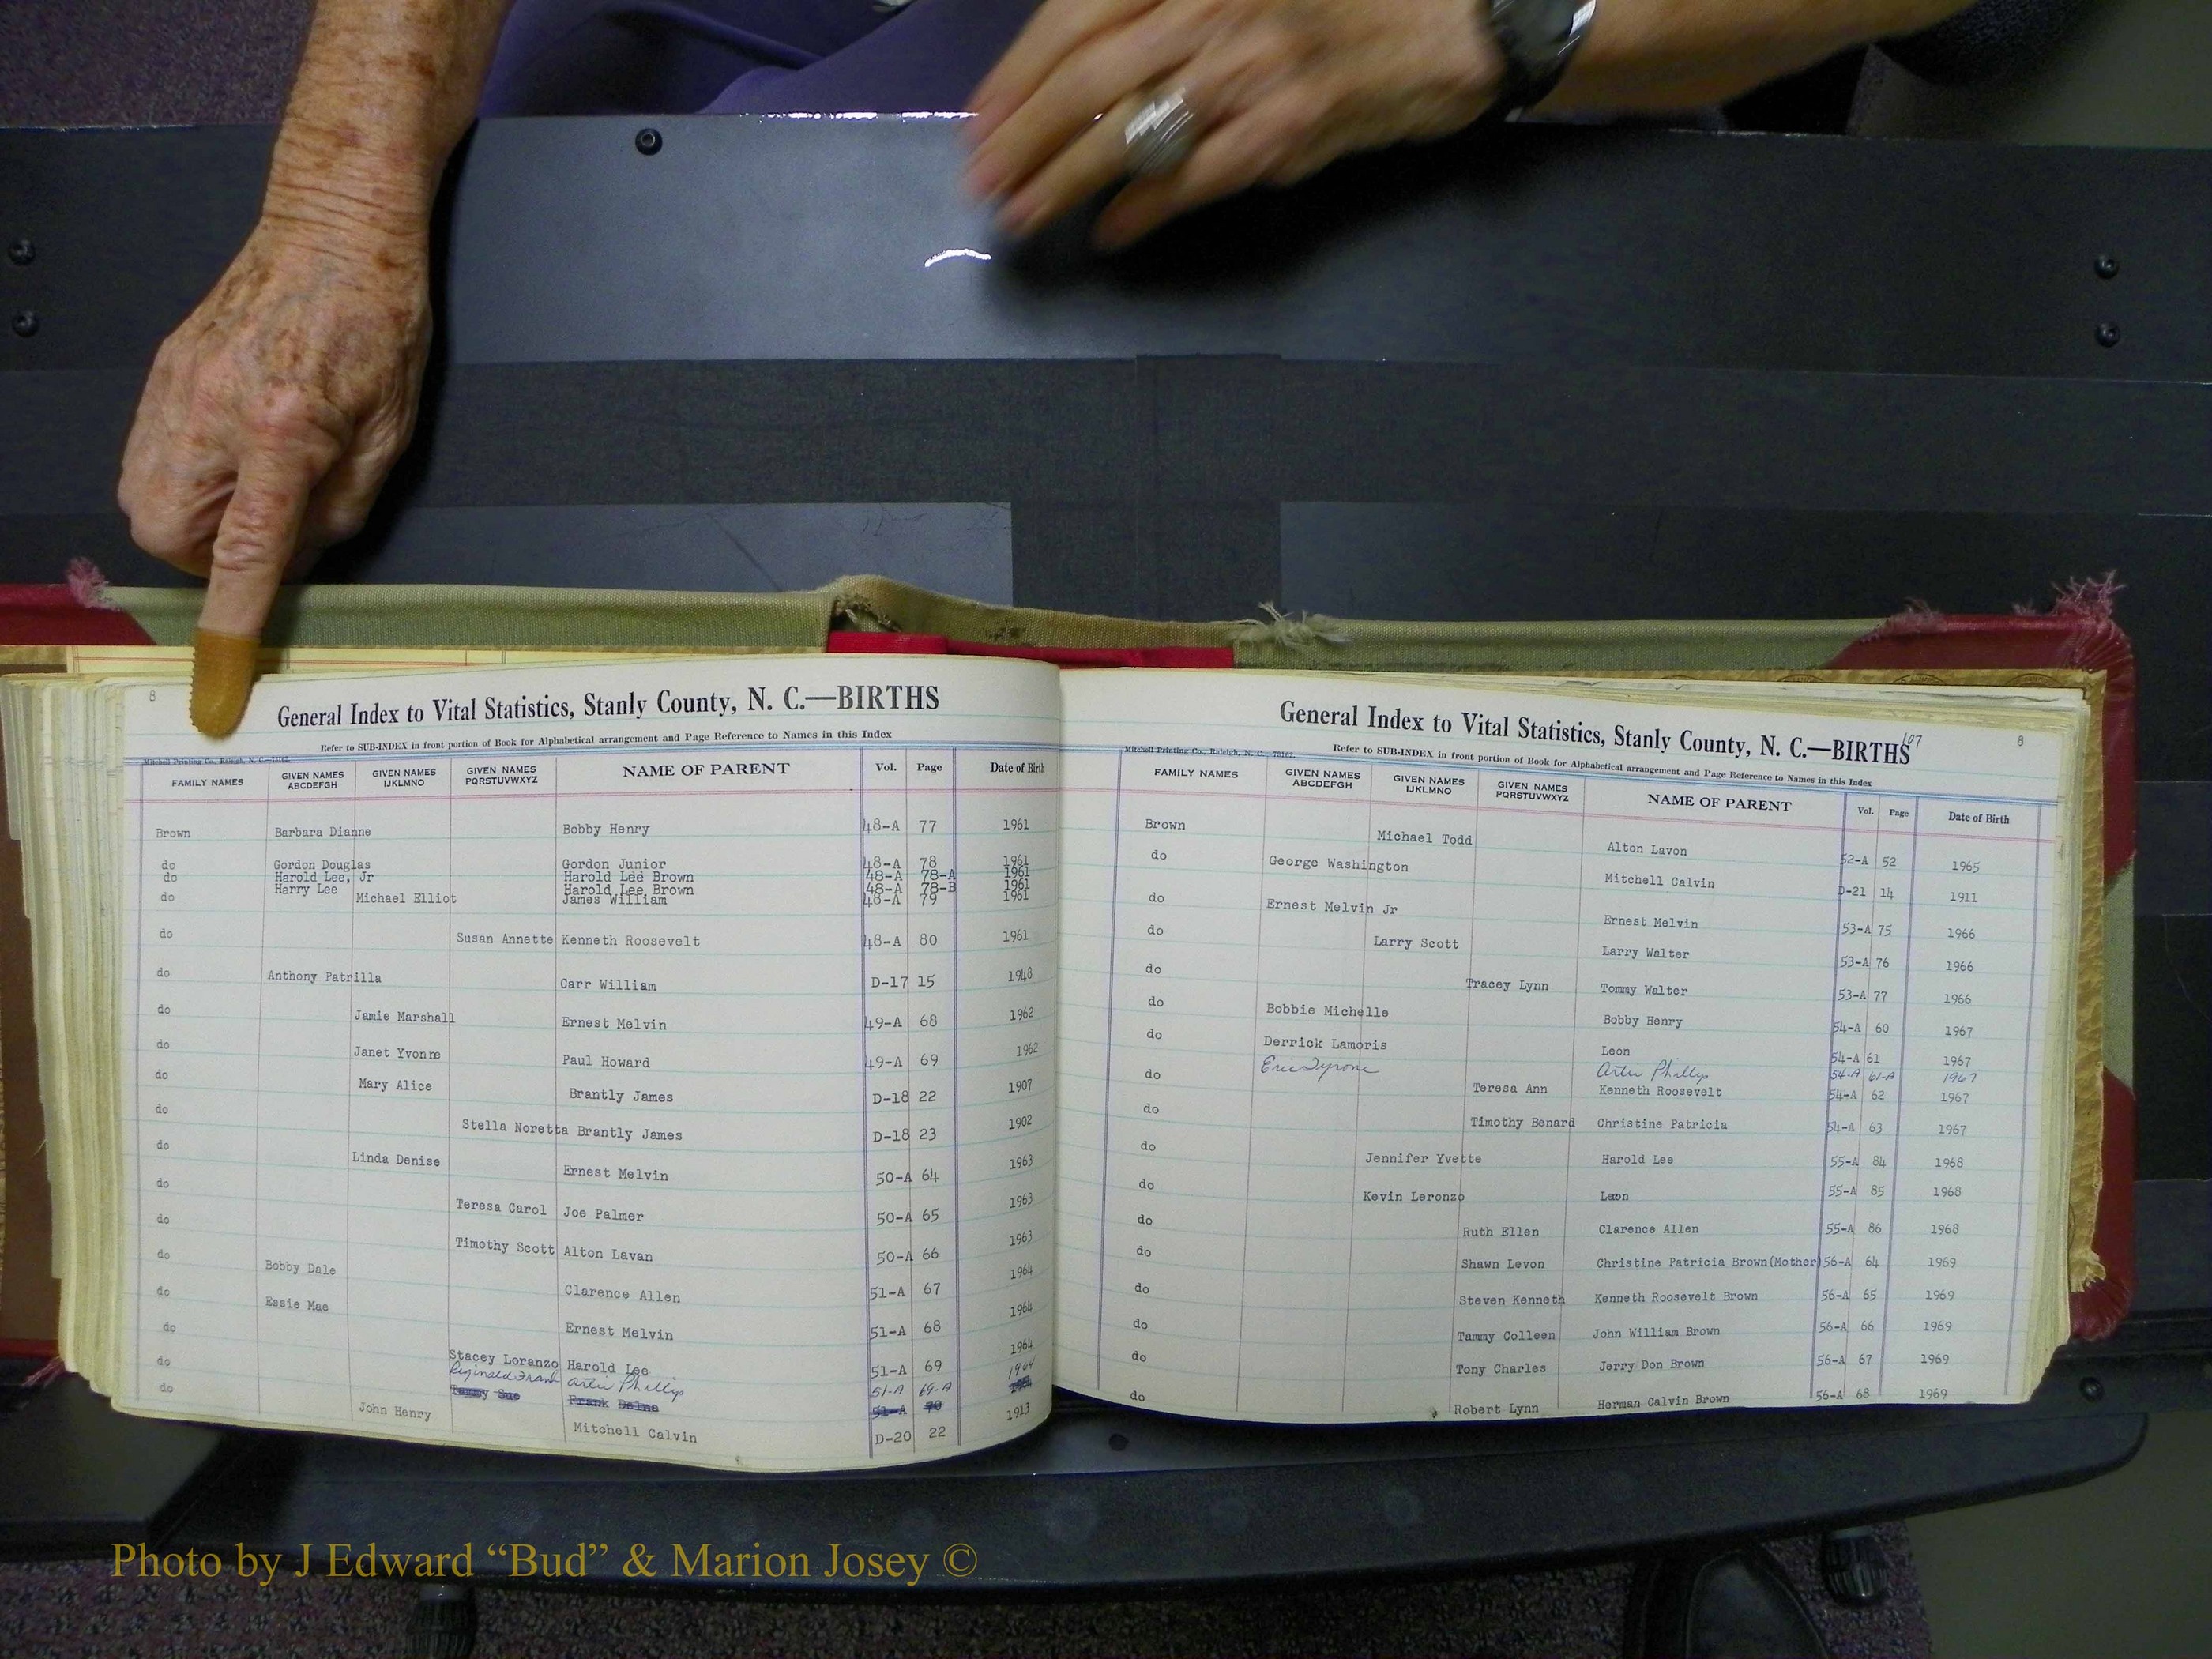 8
General Index to Vital Statistics, Stanly County, N. C.—BIRTHS
Refer to SUB-INDEX in front portion of Book for Alphabetical arrangement and Page Reference to Names in this Index
Mitchell Printing Co., Raleigh, N. C.
FAMILY NAMES GIVEN NAMES ABCDEFGH GIVEN NAMES IJKLMNO GIVEN NAMES PQRSTUVWXYZ NAME OF PARENT Vol. Page Date of Birth
Brown Barbara Dianne Bobby Henry 48-A 77 1961
do Gordon Douglas Gordon Junior 48-A 78 1961
do Harold Lee, Jr Harold Lee Brown 48-A 78-A 1961
Harry Lee Harold Lee Brown 48-A 78-B 1961
do Michael Elliot James William 48-A 79 1961
do Susan Annette Kenneth Roosevelt 48-A 80 1961
do Anthony Patrilla Carr William D-17 15 1948
do Jamie Marshall Ernest Melvin 49-A 68 1962
do Janet Yvonne Paul Howard 49-A 69 1962
do Mary Alice Brantly James D-18 22 1907
do Stella Noretta Brantly James D-18 23 1902
do Linda Denise Ernest Melvin 50-A 64 1963
do Teresa Carol Joe Palmer 50-A 65 1963
do Timothy Scott Alton Lavan 50-A 66 1963
do Bobby Dale Clarence Allen 51-A 67 1964
do Essie Mae Ernest Melvin 51-A 68 1964
do Stacey Loranzo Harold Lee 51-A 69 1964
do Reginald Frank Artis Phillip 51-A 69-A 1964
Tammy Sue Frank Delna 51-A 70 1964
do John Henry Mitchell Calvin D-20 22 1913
General Index to Vital Statistics, Stanly County, N. C.—BIRTHS
107
8
Refer to SUB-INDEX in front portion of Book for Alphabetical arrangement and Page Reference to Names in this Index
Mitchell Printing Co., Raleigh, N. C.—75162
FAMILY NAMES GIVEN NAMES ABCDEFGH GIVEN NAMES IJKLMNO GIVEN NAMES PQRSTUVWXYZ NAME OF PARENT Vol. Page Date of Birth
Brown Michael Todd Alton Lavon 52-A 52 1965
do George Washington Mitchell Calvin D-21 14 1911
do Ernest Melvin Jr Ernest Melvin 53-A 75 1966
do Larry Scott Larry Walter 53-A 76 1966
do Tracey Lynn Tommy Walter 53-A 77 1966
do Bobbie Michelle Bobby Henry 54-A 60 1967
do Derrick Lamoris Leon 54-A 61 1967
Eric Tyrone Artis Phillip 54-A 61-A 1967
do Teresa Ann Kenneth Roosevelt 54-A 62 1967
do Timothy Benard Christine Patricia 54-A 63 1967
do Jennifer Yvette Harold Lee 55-A 84 1968
do Kevin Leronzo Leon 55-A 85 1968
do Ruth Ellen Clarence Allen 55-A 86 1968
do Shawn Levon Christine Patricia Brown(Mother) 56-A 64 1969
do Steven Kenneth Kenneth Roosevelt Brown 56-A 65 1969
do Tammy Colleen John William Brown 56-A 66 1969
do Tony Charles Jerry Don Brown 56-A 67 1969
do Robert Lynn Herman Calvin Brown 56-A 68 1969
Photo by J Edward “Bud” & Marion Josey ©